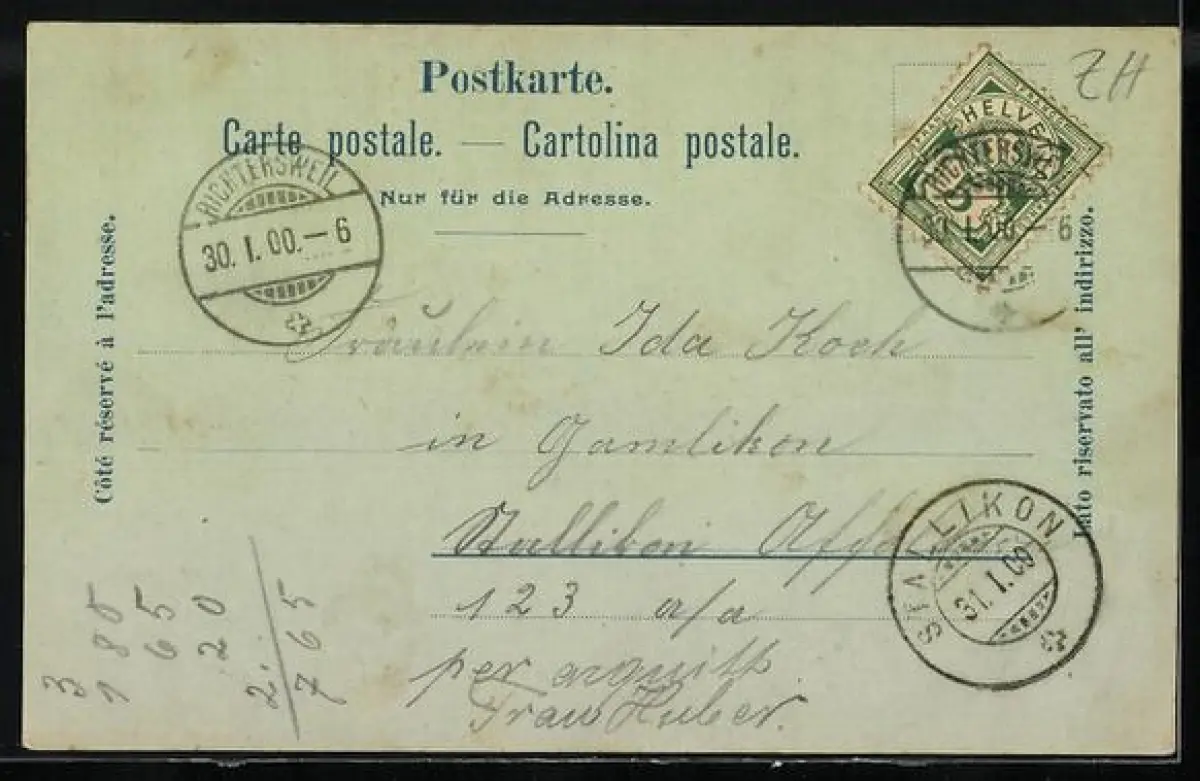 Postkarte.
Carte postale. — Cartolina postale.
Nur für die Adresse.
Côté réservé à l'adresse.
Lato riservato all' indirizzo.
ZH
HELVETIA
RICHTERSWEIL
30. I. 00. – 6
RICHTERSWEIL
30. I. 00. – 6
Fräulein Ida Koch
in Gamliken
Stalliken
123 a/a
per
Frau Huber.
STALLIKON
31. I. 00